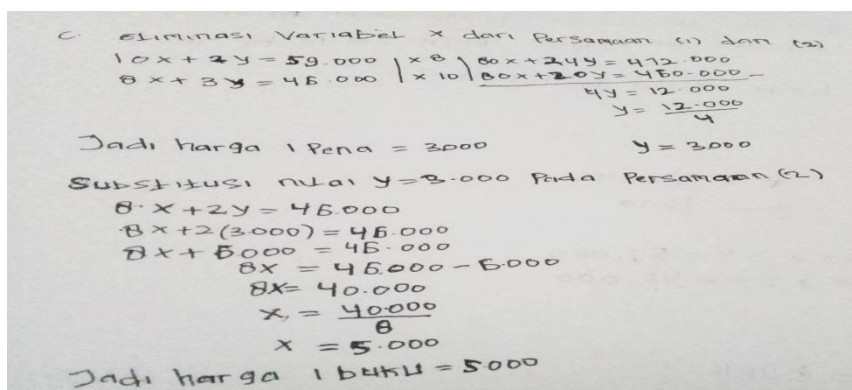 C. Eliminasi Variabel x dari Persamaan (1) dan (2)
10x + 2y = 59.000 | x 8 | 80x + 24y = 472.000
8x + 3y = 46.000 | x 10 | 80x + 20y = 460.000 –
4y = 12.000
y = 12.000 / 4
Jadi harga 1 Pena = 3000 y = 3000
Substitusi nilai y = 3.000 Pada Persamaan (2)
8x + 2y = 46.000
8x + 2(3.000) = 46.000
8x + 6000 = 46.000
8x = 46.000 – 6.000
8x = 40.000
x = 40.000 / 8
x = 5.000
Jadi harga 1 buku = 5000